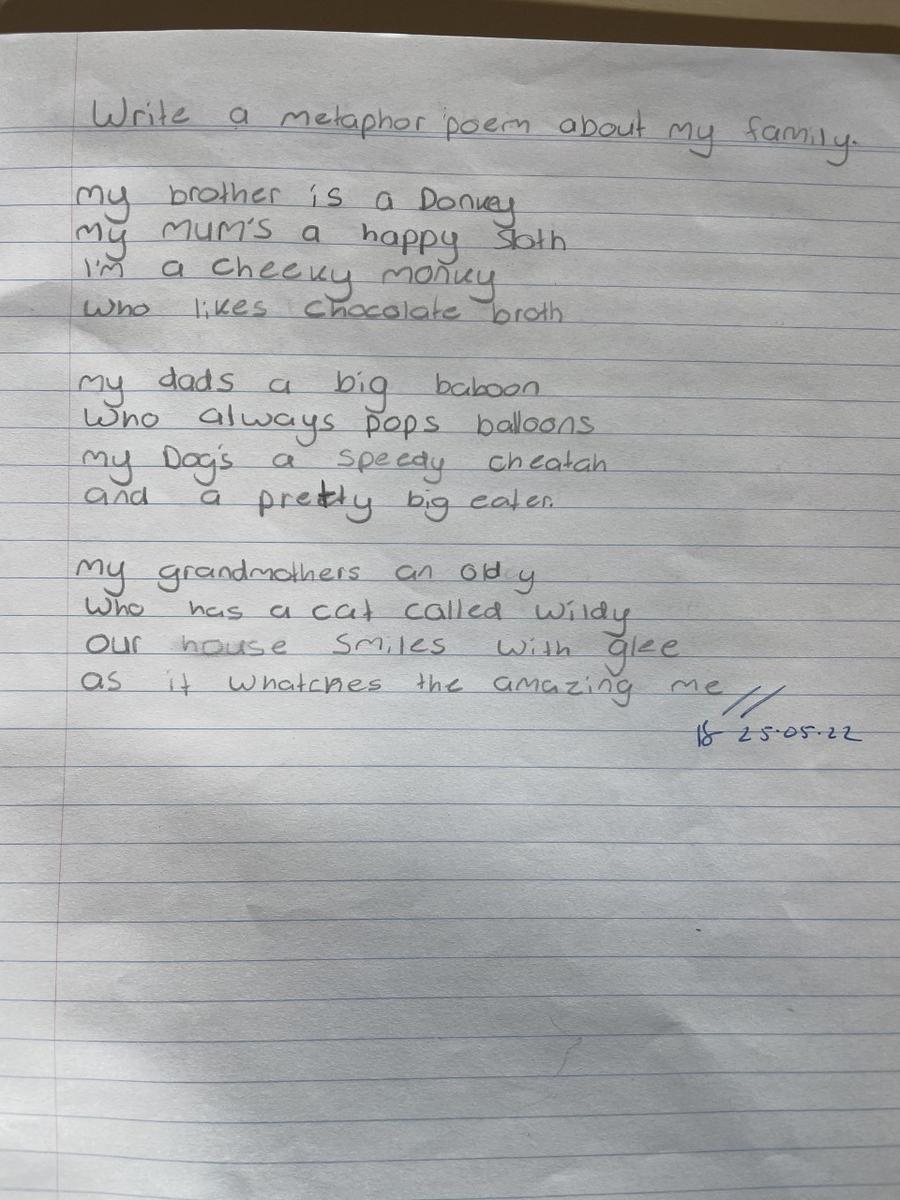 Write a metaphor poem about my family.
my brother is a Donkey
my MUM'S a happy Sloth
I'm a cheeky monky
who likes chocolate broth
my dads a big baboon
who always pops balloons
my Dog's a speedy cheatah
and a pretty big eater.
my grandmothers an oldy
who has a cat called wildy
our house smiles with glee
as it whatches the amazing me
25.05.22